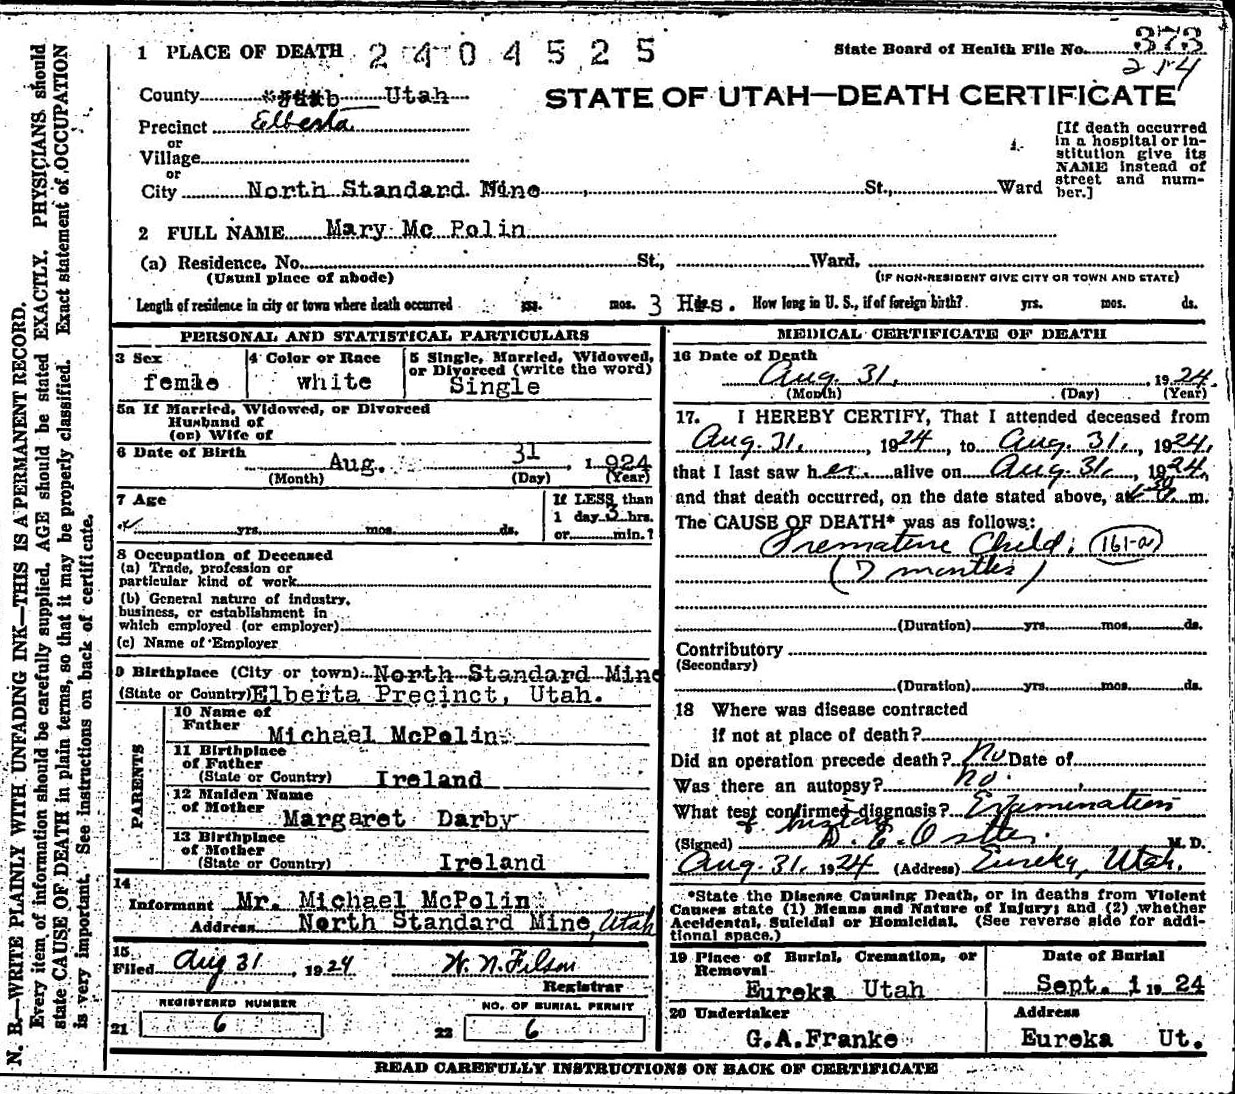 1 PLACE OF DEATH 2404525
State Board of Health File No. 373
214
County Juab Utah
STATE OF UTAH—DEATH CERTIFICATE
Precinct Elberta
or
Village
or
City North Standard Mine, St., Ward
[If death occurred
in a hospital or in-
stitution give its
NAME instead of
street and num-
ber.]
2 FULL NAME Mary Mc Polin
(a) Residence. No. St., Ward.
(Usual place of abode) (IF NON-RESIDENT GIVE CITY OR TOWN AND STATE)
Length of residence in city or town where death occurred yrs. mos. 3 Hrs. How long in U. S., if of foreign birth? yrs. mos. ds.
PERSONAL AND STATISTICAL PARTICULARS
3 Sex
femle
4 Color or Race
white
5 Single, Married, Widowed,
or Divorced (write the word)
Single
5a If Married, Widowed, or Divorced
Husband of
(or) Wife of
6 Date of Birth Aug. 31, 1924
(Month) (Day) (Year)
7 Age
yrs. mos. ds.
If LESS than
1 day 3 hrs.
or min.?
8 Occupation of Deceased
(a) Trade, profession or
particular kind of work
(b) General nature of industry,
business, or establishment in
which employed (or employer)
(c) Name of Employer
9 Birthplace (City or town) North Standard Mine
(State or Country) Elberta Precinct, Utah.
PARENTS
10 Name of
Father Michael McPolin
11 Birthplace
of Father
(State or Country) Ireland
12 Maiden Name
of Mother
Margaret Darby
13 Birthplace
of Mother
(State or Country) Ireland
14
Informant Mr. Michael McPolin
Address North Standard Mine, Utah
15
Filed Aug 31, 1924 W. N. Filson
Registrar
REGISTERED NUMBER
21 6
NO. OF BURIAL PERMIT
22 6
MEDICAL CERTIFICATE OF DEATH
16 Date of Death
Aug. 31, 1924.
(Month) (Day) (Year)
17. I HEREBY CERTIFY, That I attended deceased from
Aug. 31, 1924, to Aug. 31, 1924,
that I last saw her alive on Aug. 31, 1924,
and that death occurred, on the date stated above, at m.
The CAUSE OF DEATH* was as follows:
Premature Child. (161-a)
(7 months)
(Duration) yrs. mos. ds.
Contributory
(Secondary)
(Duration) yrs. mos. ds.
18 Where was disease contracted
if not at place of death?
Did an operation precede death? No Date of
Was there an autopsy? No.
What test confirmed diagnosis? Examination
& history
(Signed) M.D.
Aug. 31, 1924 (Address) Eureka, Utah.
*State the Disease Causing Death, or in deaths from Violent
Causes state (1) Means and Nature of Injury; and (2) whether
Accidental, Suicidal or Homicidal. (See reverse side for addi-
tional space.)
19 Place of Burial, Cremation, or
Removal
Eureka Utah
Date of Burial
Sept. 1 1924
20 Undertaker
G.A.Franke
Address
Eureka Ut.
READ CAREFULLY INSTRUCTIONS ON BACK OF CERTIFICATE
N. B.—WRITE PLAINLY WITH UNFADING INK—THIS IS A PERMANENT RECORD.
Every item of information should be carefully supplied. AGE should be stated EXACTLY. PHYSICIANS should
state CAUSE OF DEATH in plain terms, so that it may be properly classified. Exact statement of OCCUPATION
is very important. See instructions on back of certificate.